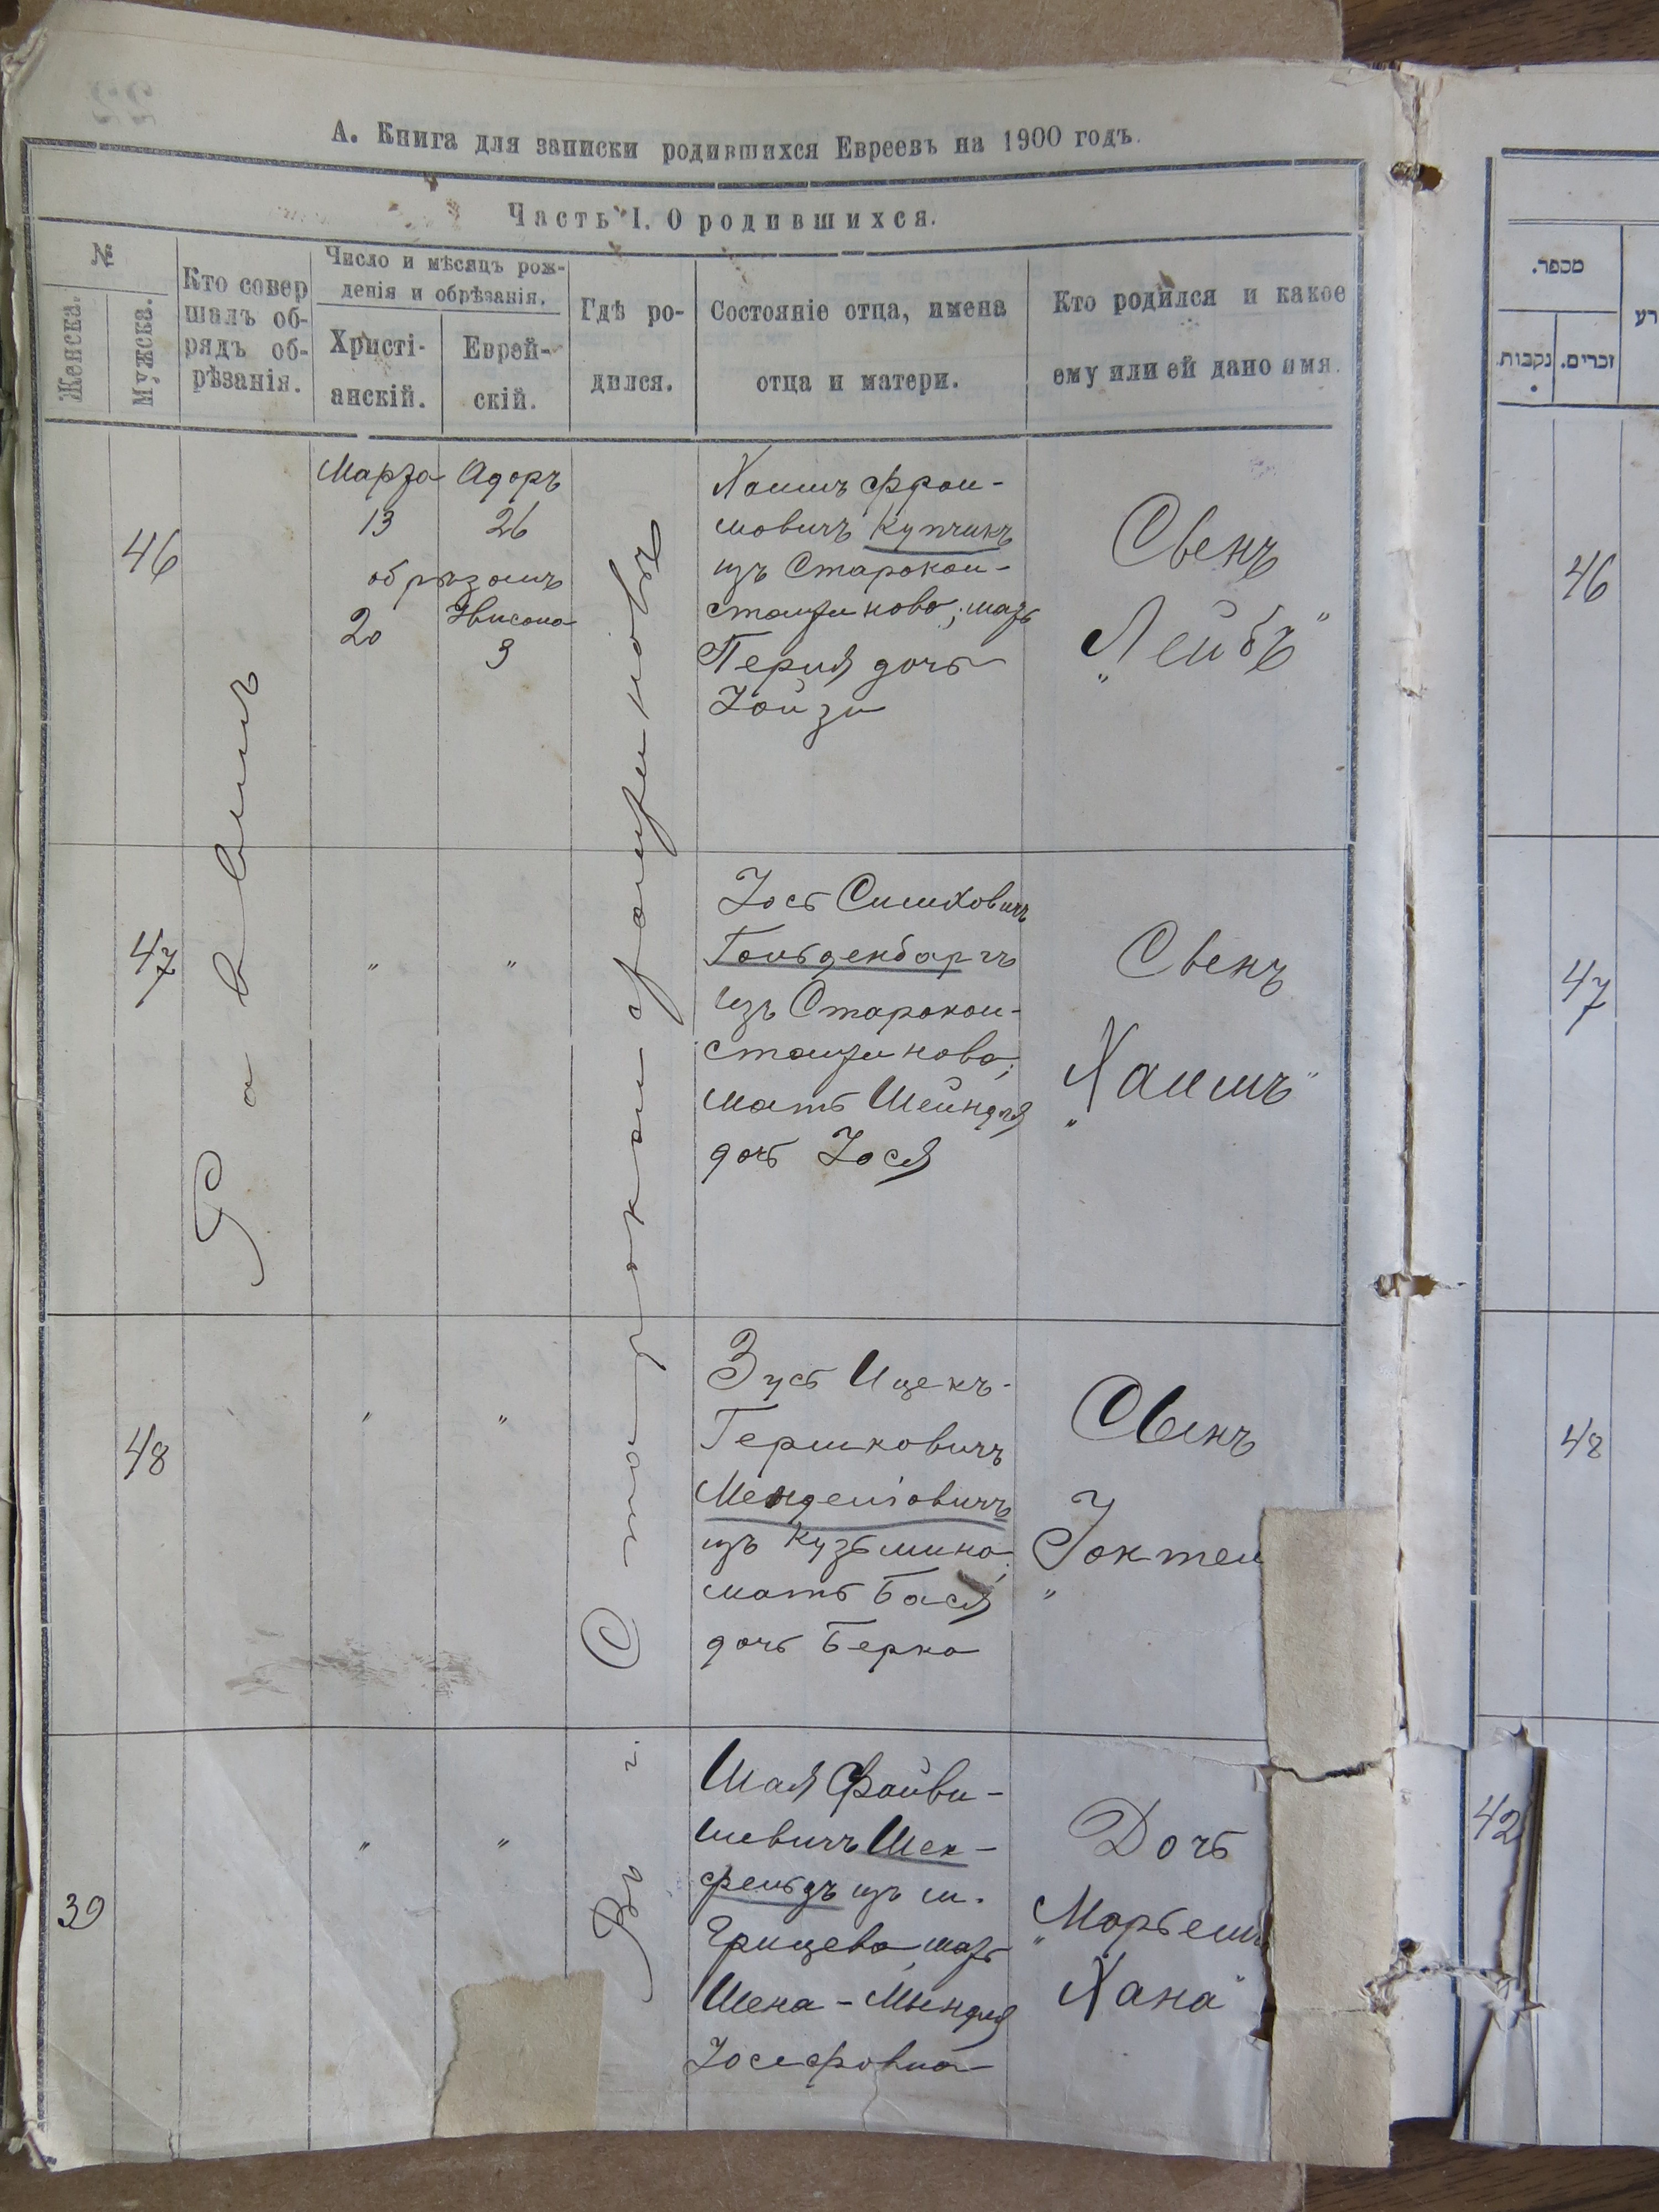 А. Книга для записки родившихся Евреевъ на 1900 годъ.
Часть I. О родившихся.
№
Женска.
Мужска.
Кто совер
шалъ об-
рядъ об-
рѣзанія.
Число и мѣсяцъ рож-
денія и обрѣзанія.
Христі-
анскій.
Еврей-
скій.
Гдѣ ро-
дился.
Состояніе отца, имена
отца и матери.
Кто родился и какое
ему или ей дано имя.
46
Раввинъ
Марта
13
Адоръ
26
обрѣзанъ
20
Нисона
3
Въ г. Староконстантиновѣ
Хаимъ Фрои-
мовичъ Купчикъ
изъ Старокон-
стантинова; мать
Перля дочь
Іойзи
Сынъ
„Лейбъ"
47
"
"
Іось Симховичъ
Гольденбаргъ
изъ Старокон-
стантинова;
мать Шейндля
дочь Іося
Сынъ
„Хаимъ"
48
"
"
Зусь Ицекъ-
Гершковичъ
изъ Кузьмина;
мать Бася
дочь Берка
Сынъ
39
"
"
Шая Файви-
шевичъ Шен-
фельдъ изъ м.
Грицева мать
Шена-Миндля
Іосефовна
Дочь
Хана"
מספר.
נקבות.
זכרים.
46
47
48
42